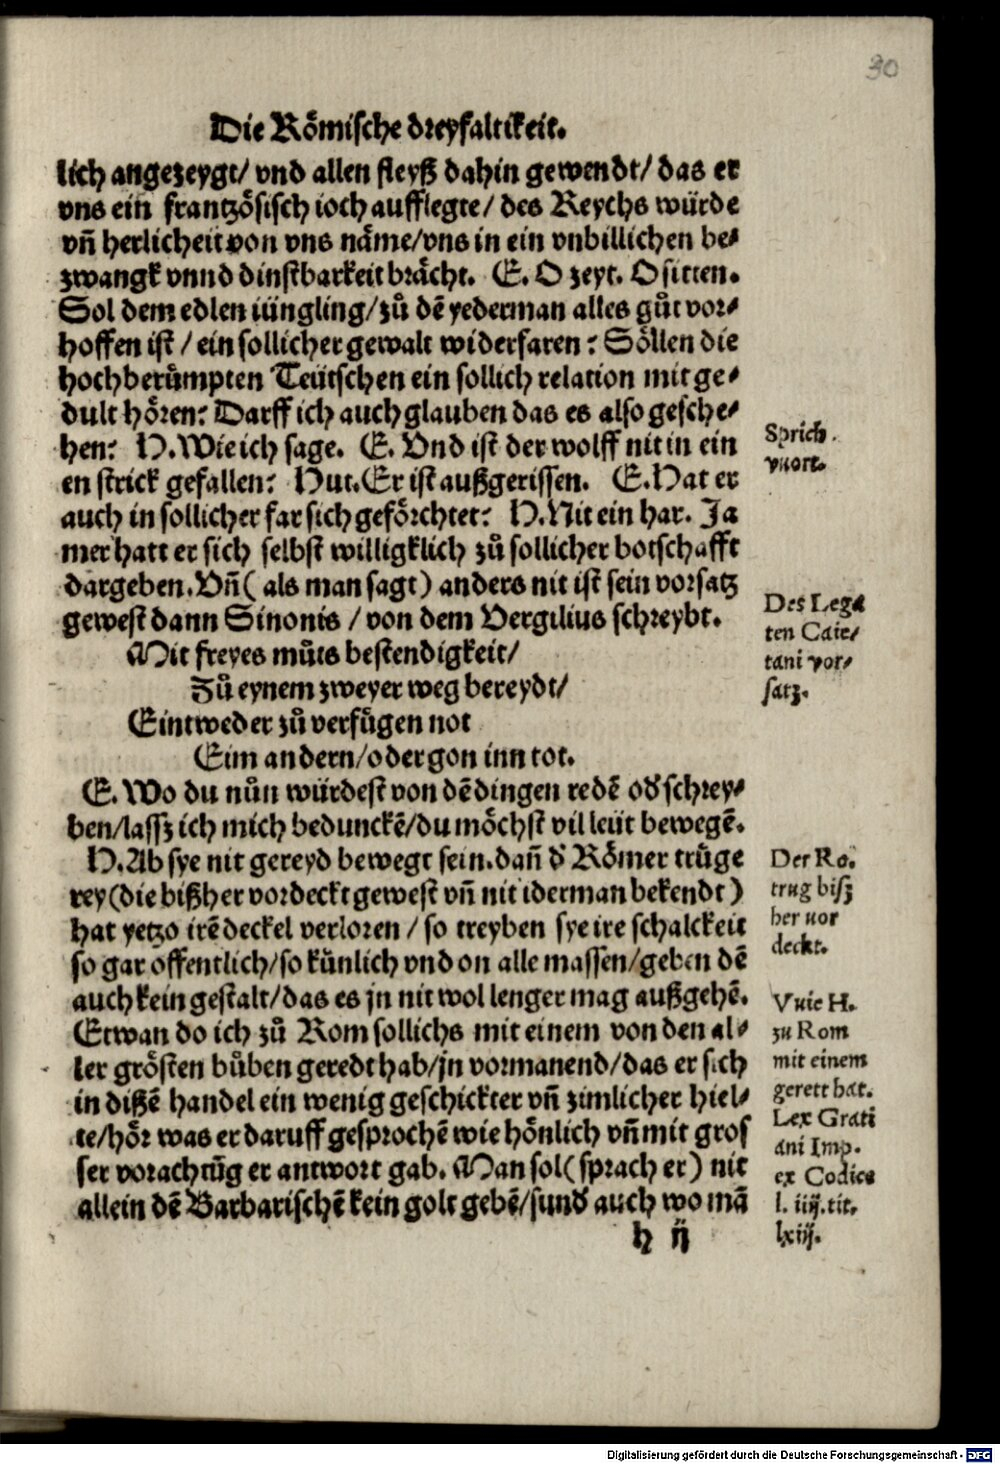 30
Die Rőmische dreyfaltikeit.
lich angezeygt/ vnd allen fleyß dahin gewendt/ das er
vns ein frantzősisch ioch aufflegte/ des Reychs würde
vñ herlicheit von vns näme/vns in ein vnbillichen be⸗
zwangk vnnd dinstbarkeit brächt. E. O zeyt. O sitten.
Sol dem edlen iüngling/zů dē yederman alles gůt vor⸗
hoffen ist / ein sollicher gewalt widerfaren? Sőllen die
hochberůmpten Teütschen ein sollich relation mit ge⸗
dult hőren? Darff ich auch glauben das es also gesche⸗
hen? H. Wie ich sage. E. Vnd ist der wolff nit in ein
en strick gefallen? Hut. Er ist außgerissen. E. Hat er
auch in sollicher far sich gefőrchtet? H. Nit ein har. Ja
mer hatt er sich selbst willigklich zů sollicher botschafft
dargeben. Vñ( als man sagt) anders nit ist sein vorsatz
gewest dann Sinonis / von dem Vergilius schreybt.
Mit freyes můts bestendigkeit/
Zů eynem zweyer weg bereydt/
Eintweder zů verfůgen not
Eim andern/oder gon inn tot.
E. Wo du nůn würdest von dē dingen redē od' schrey⸗
ben/lassz ich mich beduncke̅/du mőchst vil leüt bewegē.
H. Ab sye nit gereyd bewegt sein. dañ d' Rőmer trůge
rey(die bißher vordeckt gewest vñ nit iderman bekendt)
hat yetzo irē deckel verloren / so treyben sye ire schalckeit
so gar offentlich/so künlich vnd on alle massen/geben dē
auch kein gestalt/das es jn nit wol lenger mag außgehē.
Etwan do ich zů Rom sollichs mit einem von den al⸗
ler grősten bůben geredt hab/jn vormanend/das er sich
in dißē handel ein wenig geschickter vñ zimlicher hiel⸗
te/hőr was er daruff gesprochē wie hőnlich vñ mit gros
ser vorachtūg er antwort gab. Man sol(sprach er) nit
allein dē Barbarischē kein golt gebē/sund' auch wo mā
h ij
Sprich.
vuort.
Des Lega
ten Caie/
tani vor/
satz.
Der Ro.
trug bisz
her uor
deckt.
Vuie H.
zu Rom
mit einem
gerett hat.
Lex Grati
ani Imp.
ex Codice
l. iiij. tit.
lxiij.
Digitalisierung gefördert durch die Deutsche Forschungsgemeinschaft - DFG